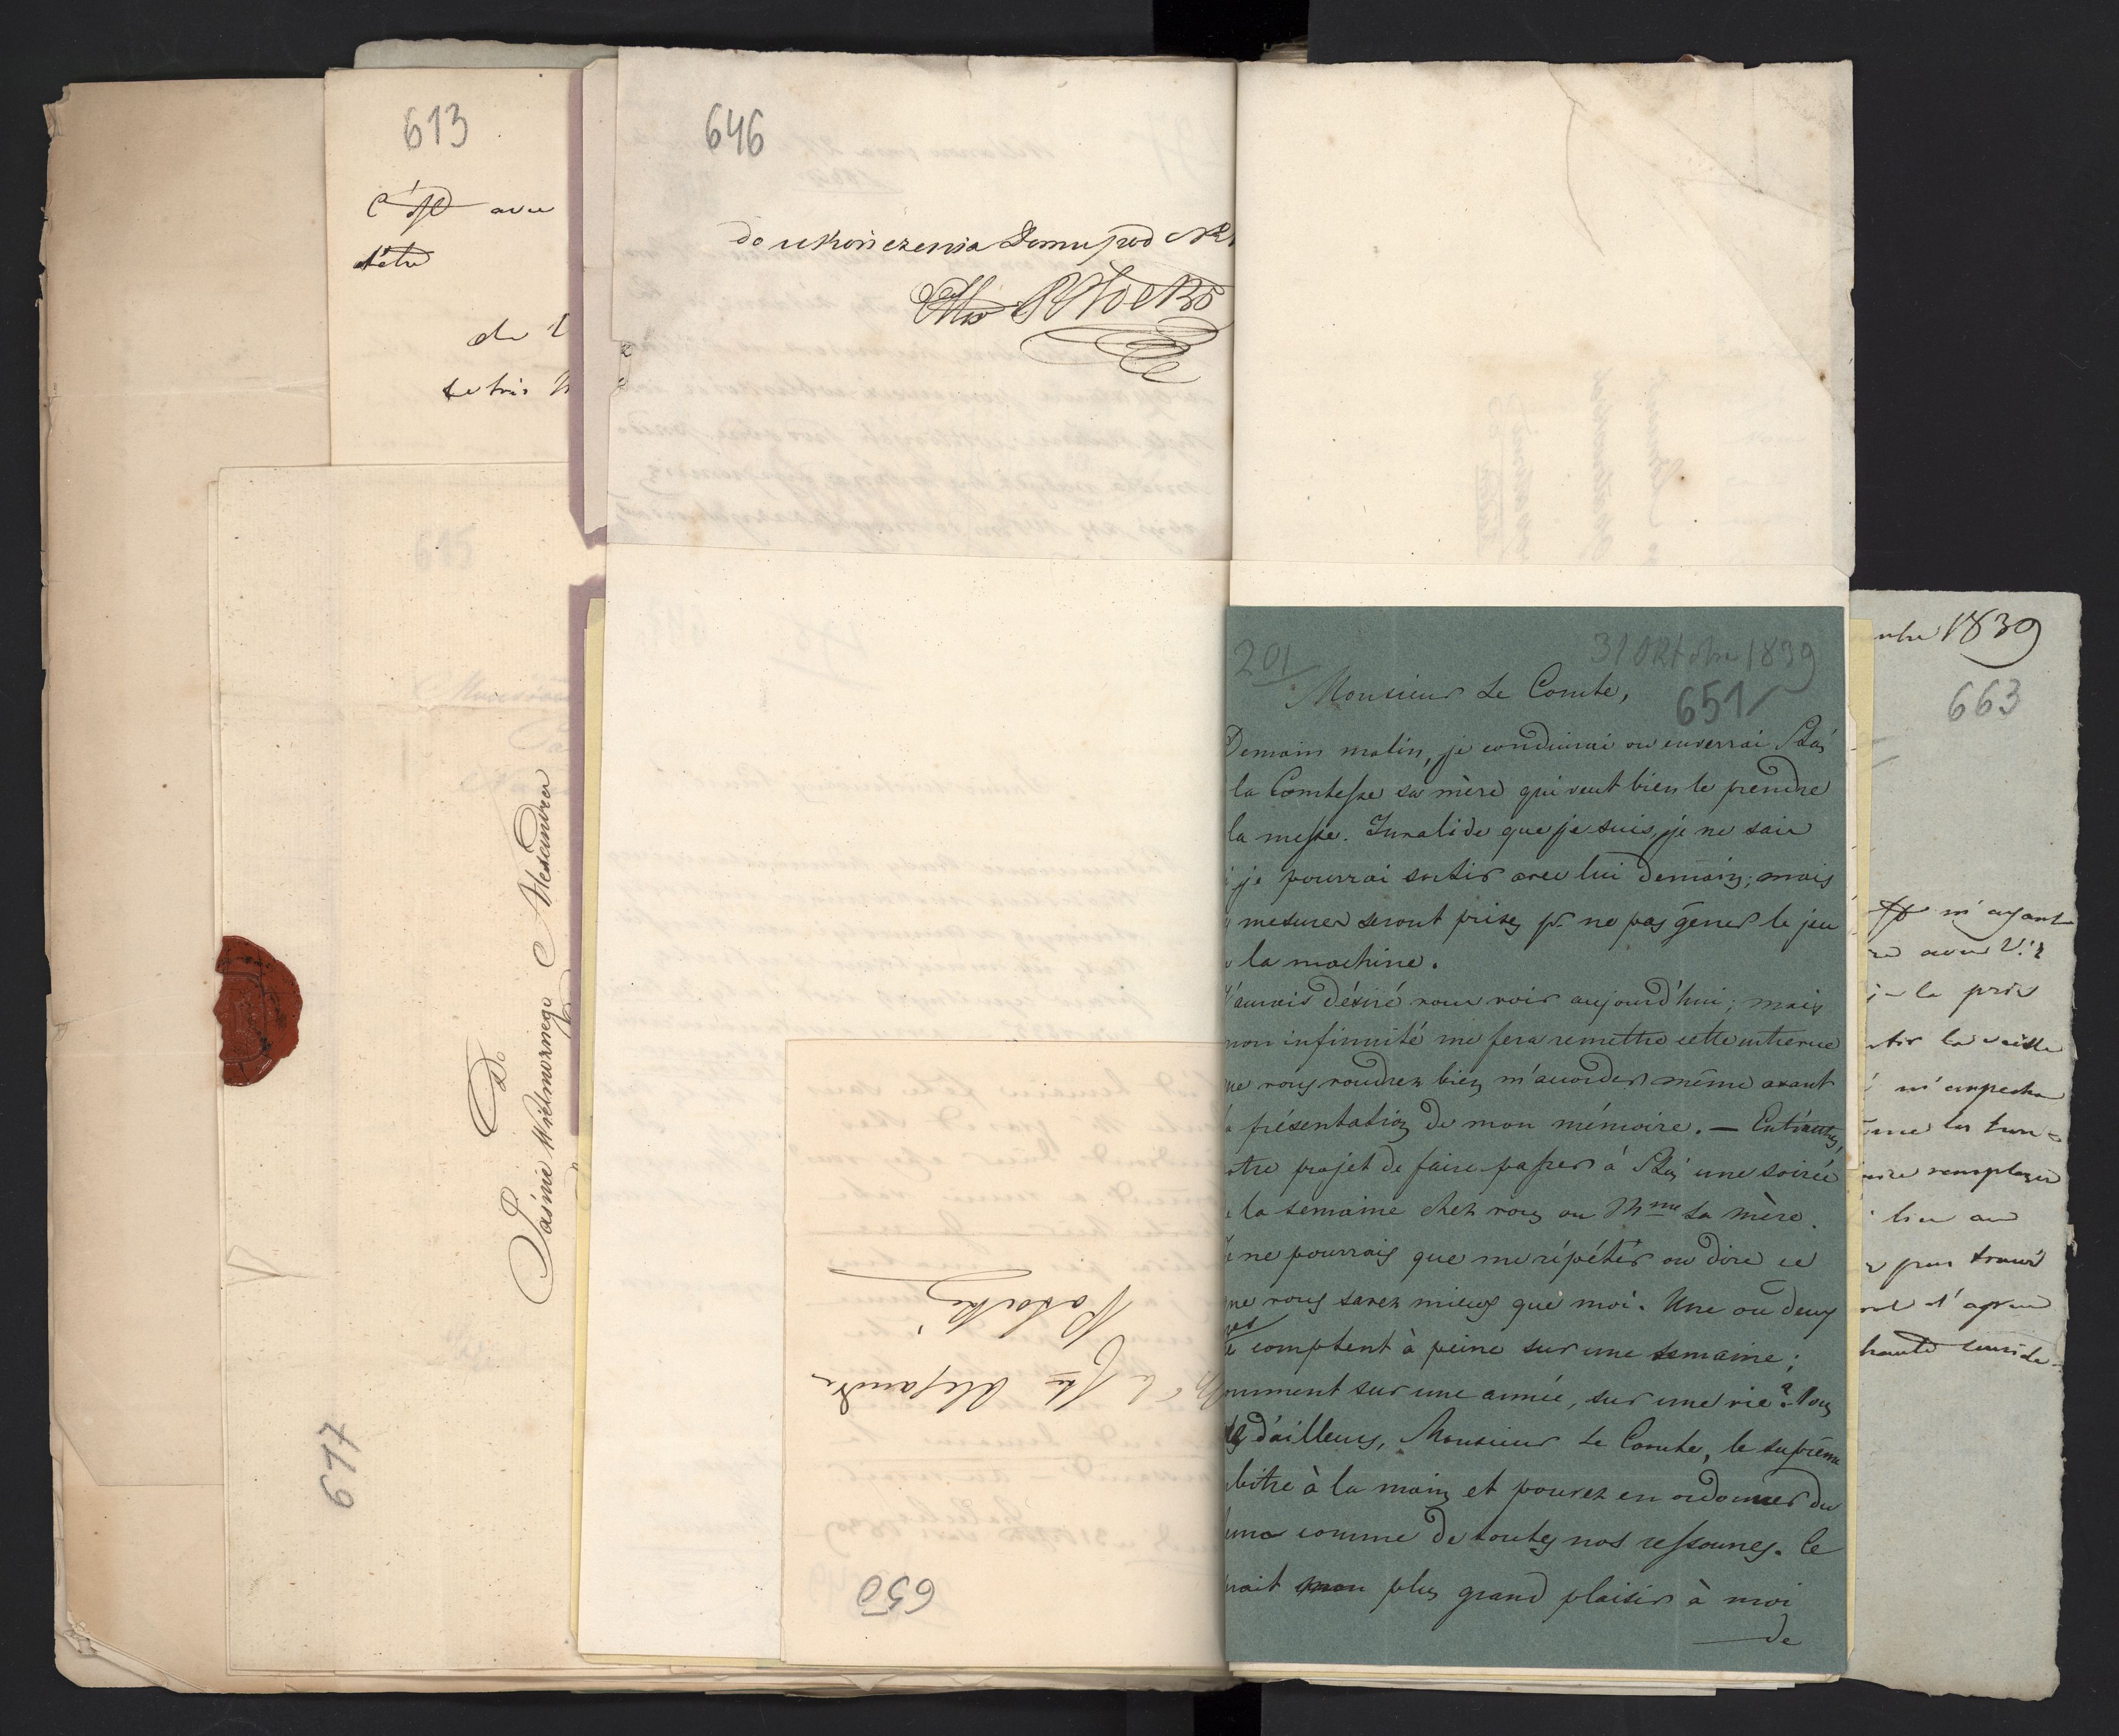 613
avec
de
646
do ukończenia Domu pod
617
Do
Jaśnie Wielmożnego Alexandra
650
Alexandre
Potocki
201
31 Oktobre 1839
651
Monsieur Le Comte,
Demain matin, je conduirai ou enverrai Staś
la Comtesse sa mère qui veut bien le prendre
la messe. Invalide que je suis, je ne sais
je pourrai sortir avec lui demain; mais
mesures seront prises pr ne pas gêner le jeu
la machine.
J'aurais désiré vous voir aujourd'hui; mais
mon infirmité me fera remettre cette entrevue
que vous voudrez bien m'accorder même avant
la présentation de mon mémoire. —
otre projet de faire passer à Staś une soirée
la semaine chez vous ou Mme sa mère.
Je ne pourrais que me répéter ou dire ce
que vous savez mieux que moi. Une ou deux
comptent à peine sur une semaine;
comment sur une année, sur une vie? Vous
d'ailleurs, Monsieur Le Comte, le suprême
bitre à la main et pouvez en ordonner du
comme de toutes nos ressources. Ce
rait mon plus grand plaisir à moi
de
mbre 1839
663
m'ayant
avec
la prie
la veille
m'empecha
remplacer
lieu au
pas trouvé
haute conside-